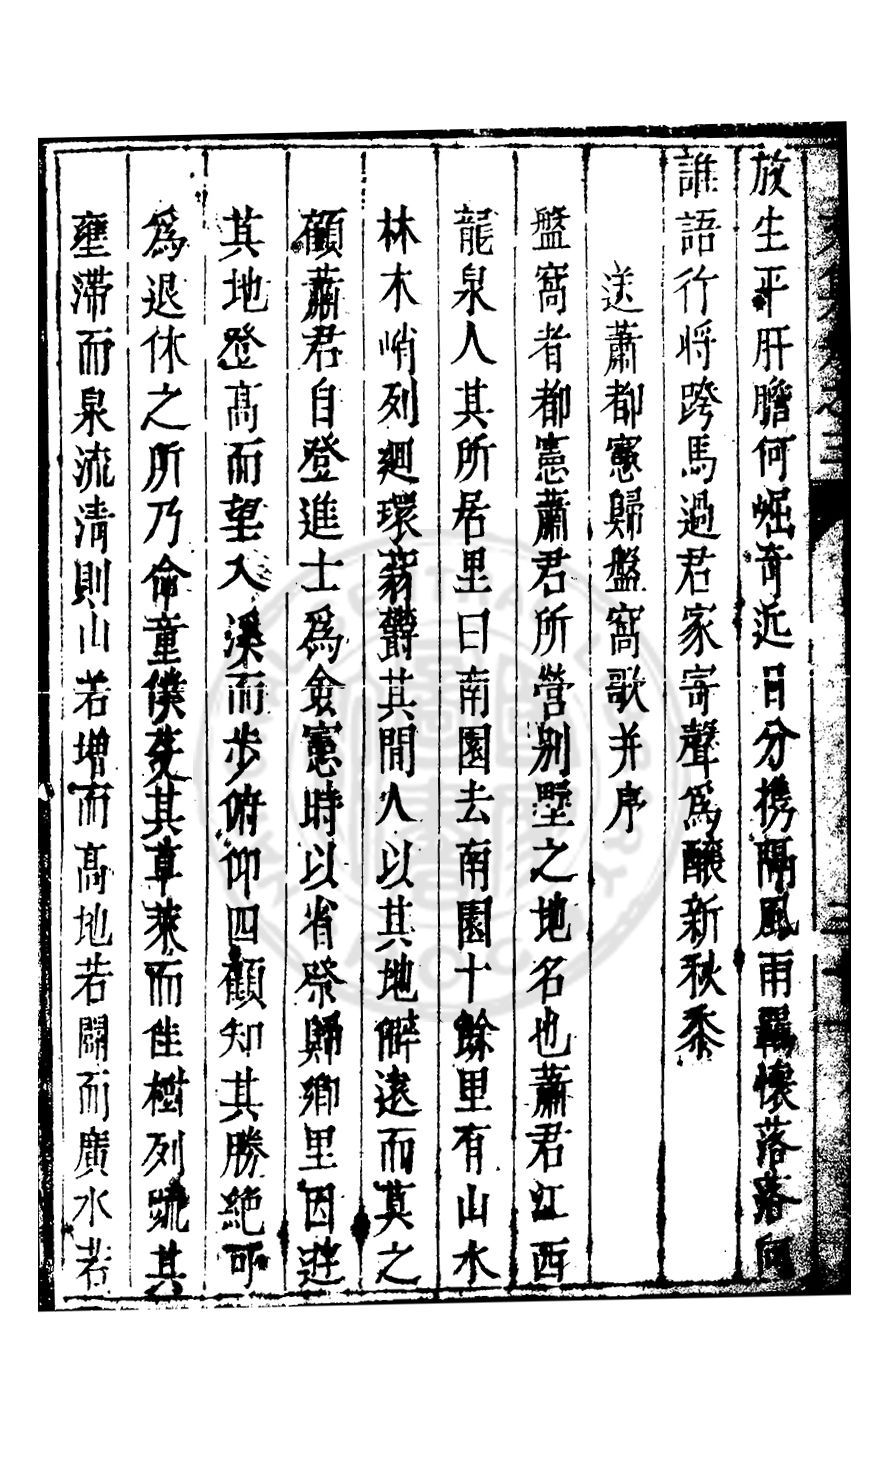 放生平肝膽何崛奇近日分携隔風雨羈懷落落向
誰語行將跨馬過君家寄聲爲釀新秋黍
送蕭都憲歸盤窩歌并序
盤窩者都憲蕭君所營别墅之地名也蕭君江西
龍泉人其所居里曰南園去南園十餘里有山水
林木峭列迴環蓊鬱其間人以其地僻遠而莫之
顧蕭君自登進士爲僉憲時以省祭歸鄉里因遊
其地登高而望入溪而步俯仰四顧知其勝絶可
爲退休之所乃命童僕芟其草萊而佳樹列疏其
壅滯而泉流清則山若增而高地若闢而廣水若